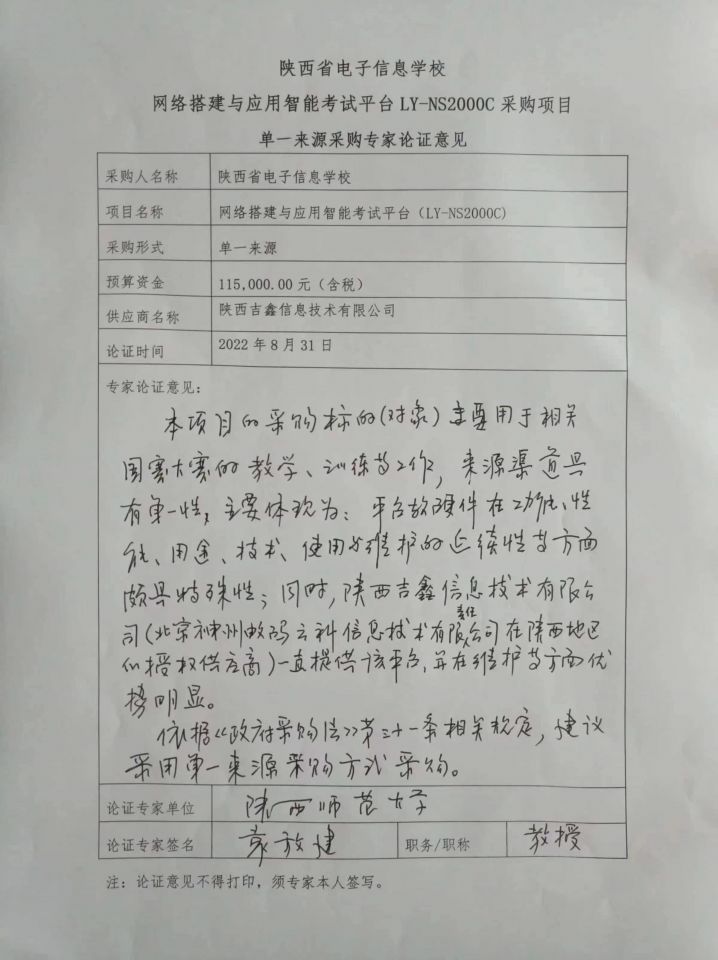 陕西省电子信息学校
网络搭建与应用智能考试平台 LY-NS2000C 采购项目
单一来源采购专家论证意见
采购人名称 陕西省电子信息学校
项目名称 网络搭建与应用智能考试平台（LY-NS2000C)
采购形式 单一来源
预算资金 115,000.00 元（含税）
供应商名称 陕西吉鑫信息技术有限公司
论证时间 2022 年 8 月 31 日
专家论证意见：
本项目的采购标的(对象)主要用于相关
国赛大赛的教学、训练等工作，来源渠道具
有单一性，主要体现为：平台软硬件在功能、性
能、用途、技术、使用与维护的延续性等方面
颇具特殊性；同时，陕西吉鑫信息技术有限公
司(北京神州数码云科信息技术有限责任公司在陕西地区
的授权供应商)一直提供该平台，并在维护等方面优
势明显。
依据《政府采购法》第三十一条相关规定，建议
采用单一来源采购方式采购。
论证专家单位 陕西师范大学
论证专家签名 袁放建 职务/职称 教授
注：论证意见不得打印，须专家本人签写。